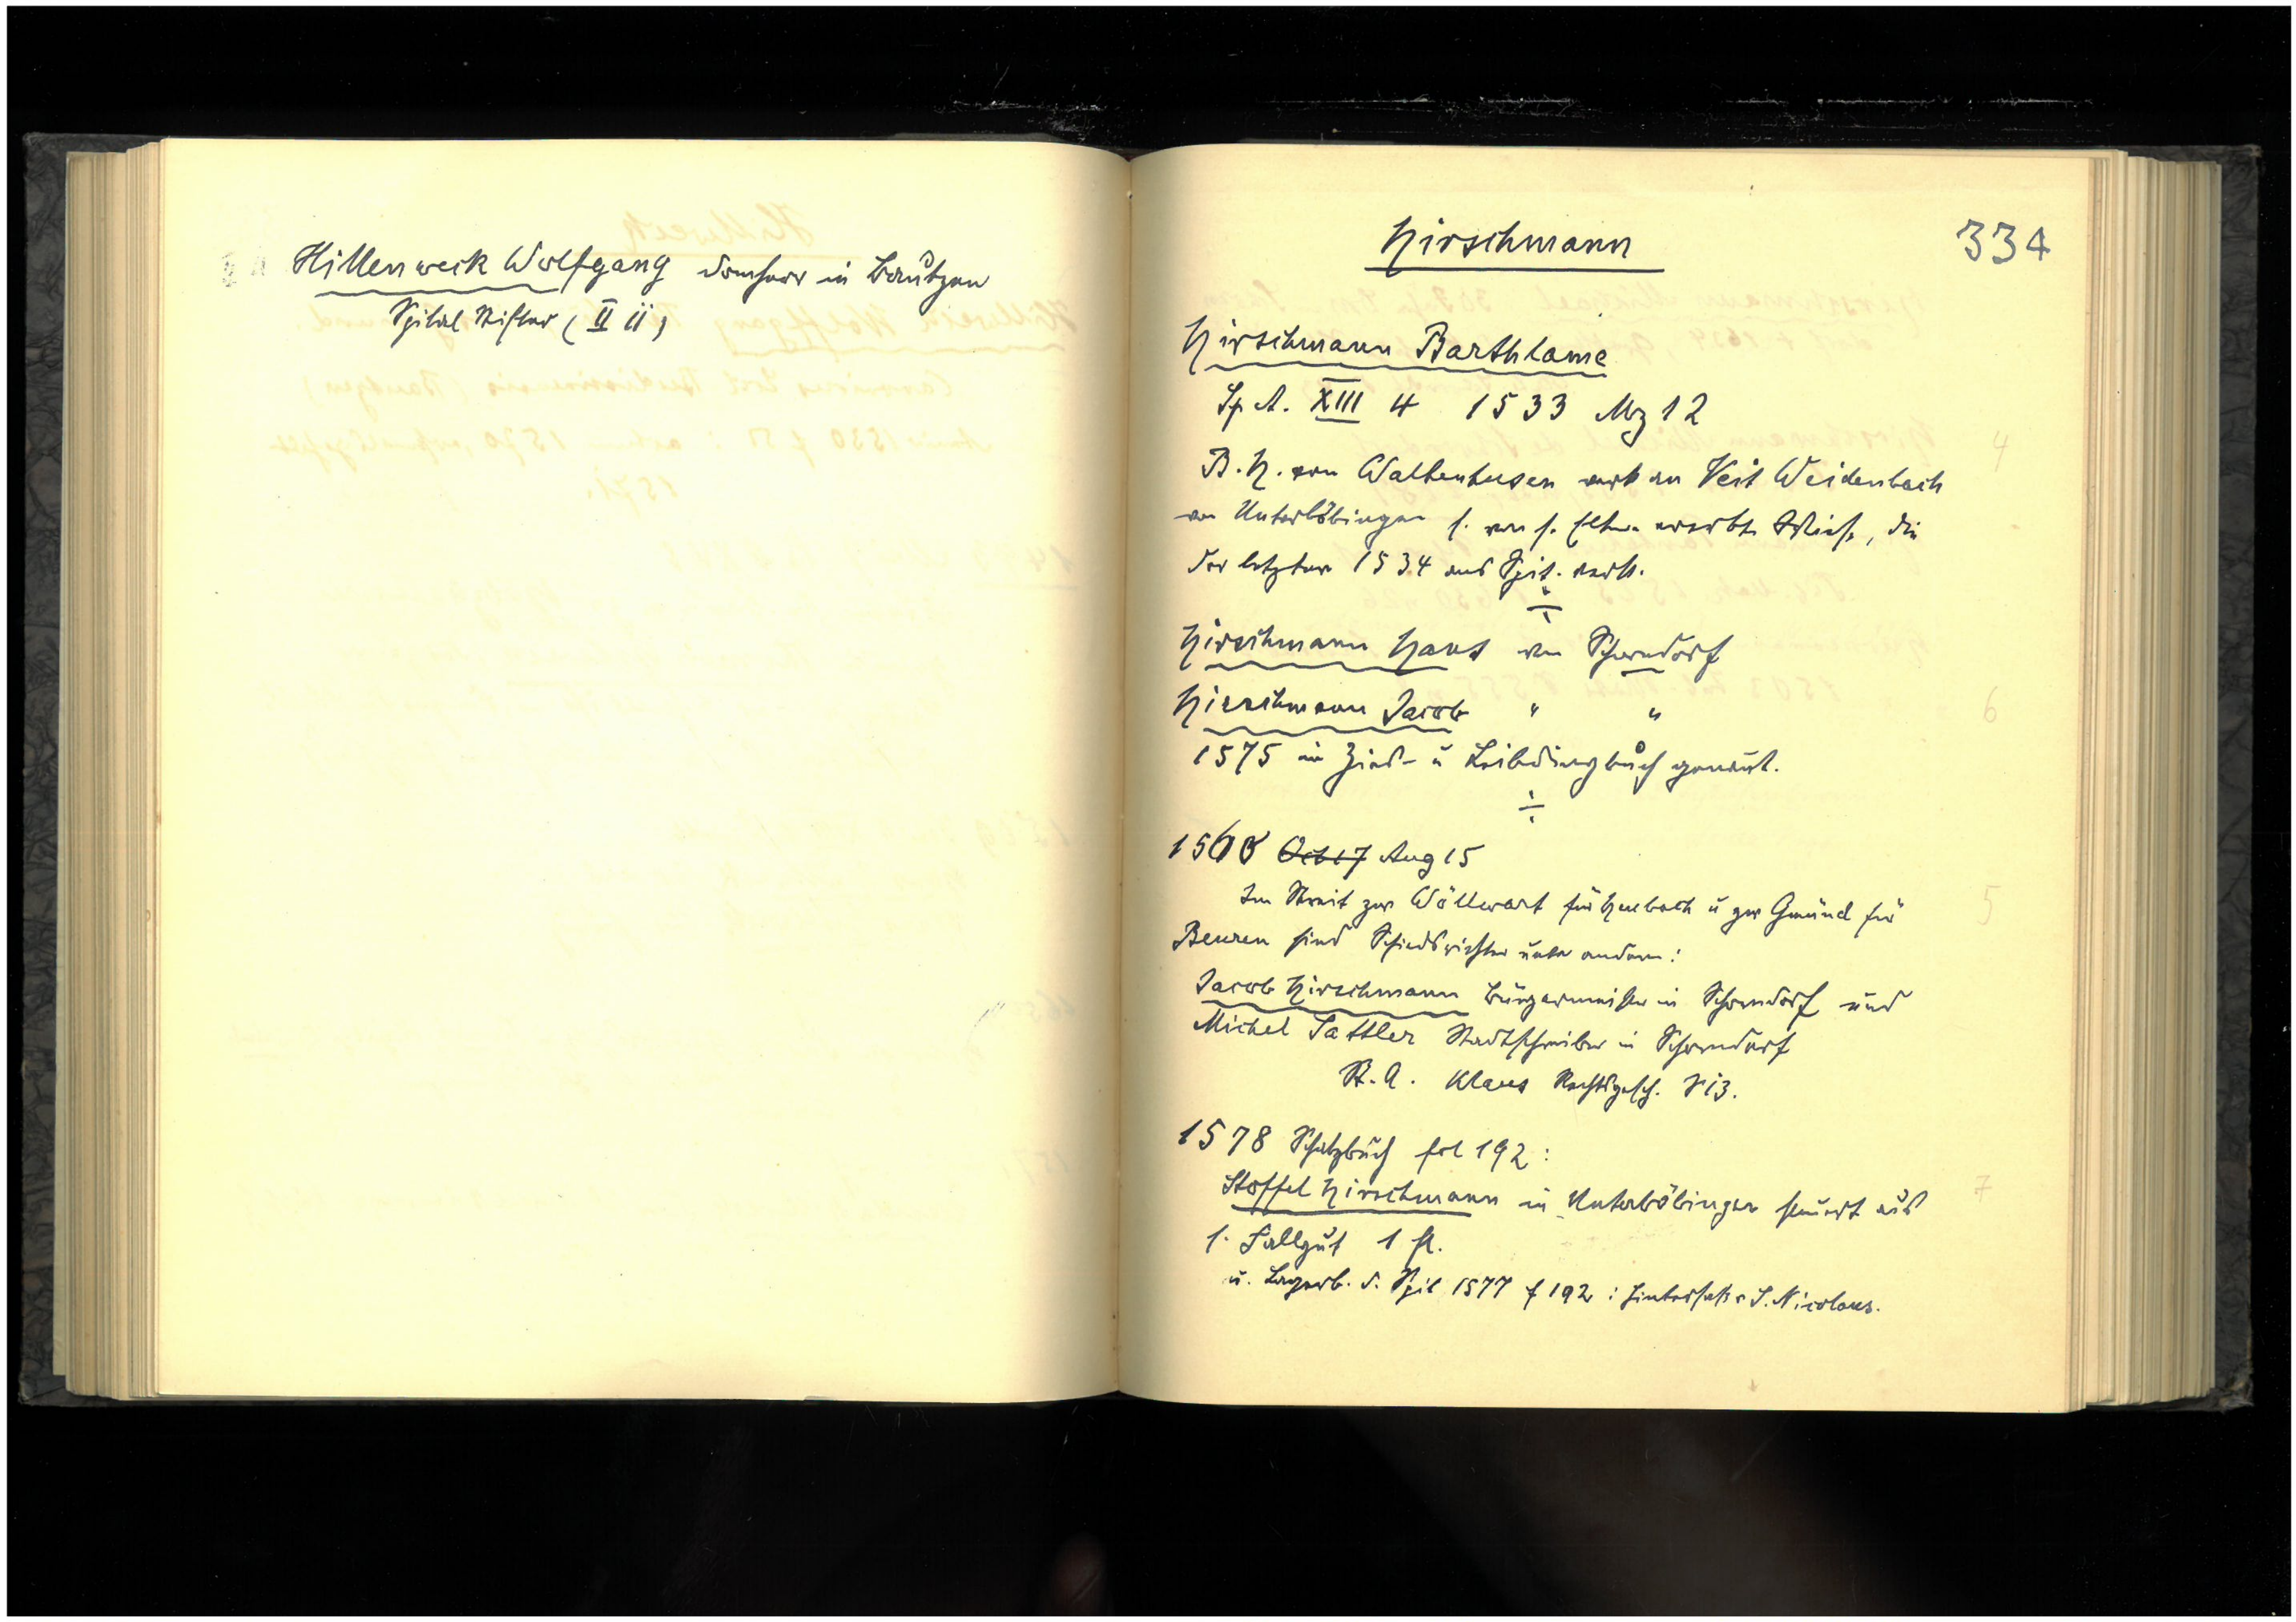 Hillenweck Wolfgang Domherr in Bautzen
Spital Stifter (II ii)
Hirschmann
334
Hirschmann Barthlome
Sp A. XIII 4 1533 Mz 12
B. H. von Waltenhusen verk an Veit Weidenbach
von Unterböbingen s. von s. Eltern ererbte Wiese, die
der letztere 1534 ans Spit. verk.
Hirschmann Hans von Schorndorf
Hirschmann Jacob " "
1575 im Zins- u Leibdingbuch genannt.
Oct 17 Aug 15
Im Streit zw Wöllwart für Heubach u zw Gmünd für
Beuren sind Schiedsrichter unter andern:
Jacob Hirschmann Bürgermeister in Schorndorf und
Michel Sattler Stadtschreiber in Schorndorf
St. A. Klaus Rechtsgesch. S 13.
1578 Schatzbuch fol 192:
Stoffel Hirschmann in Unterböbingen steuert aus
s. Fallgut 1 fl.
u. Lagerb. d. Spit 1577 f 192: Hintersaß v S. Nicolaus.